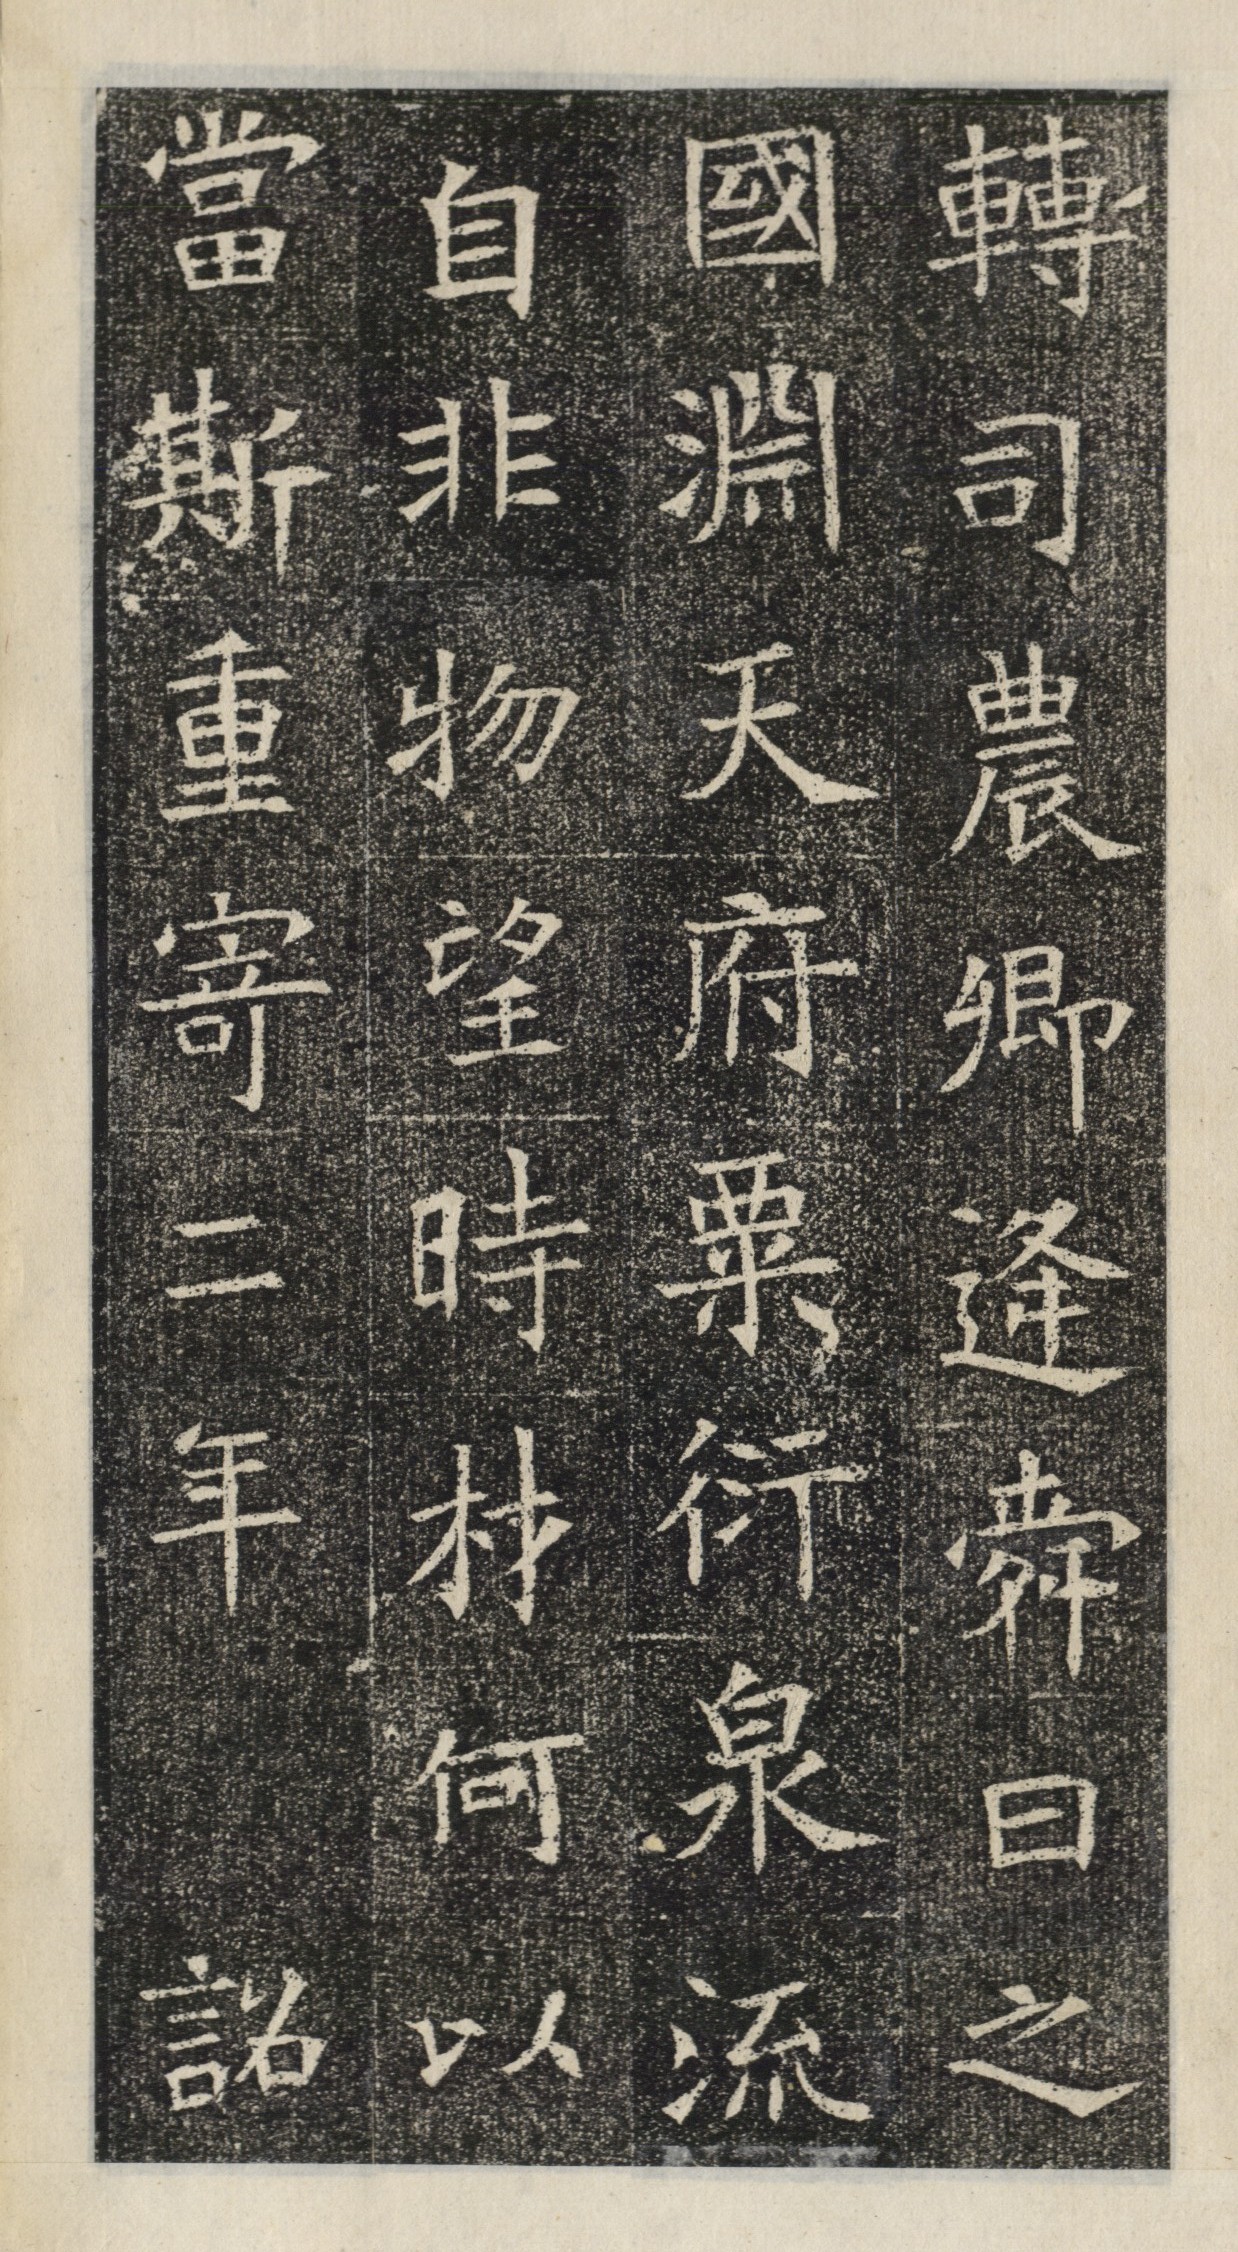 轉司農卿逄舜曰之
國淵天府粟衍泉流
自非物望時材何以
當斯重寄二年 詔